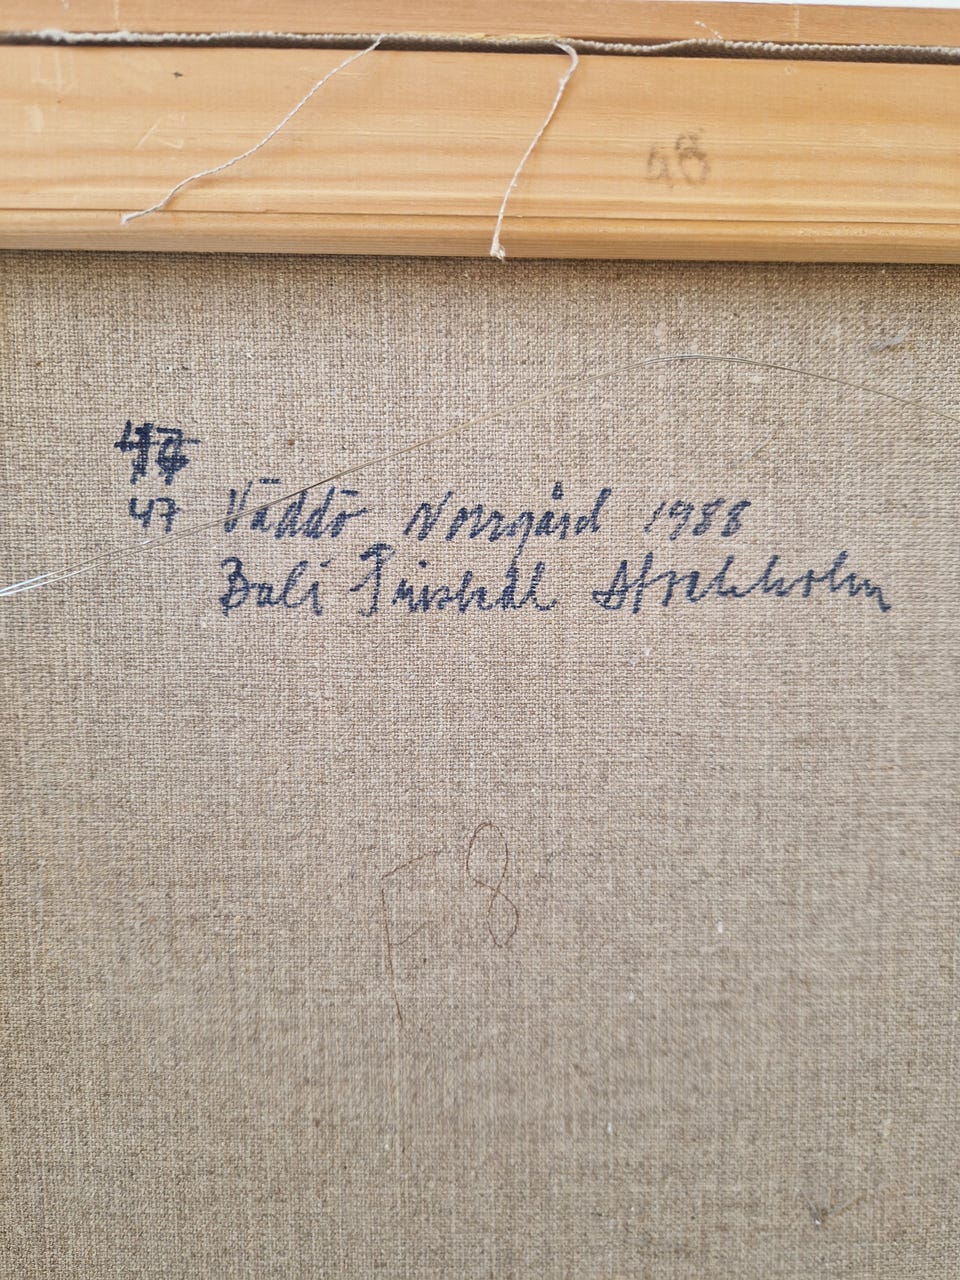 48
47
47 Väddö Norrgård 1988
Bali Stockholm
F8